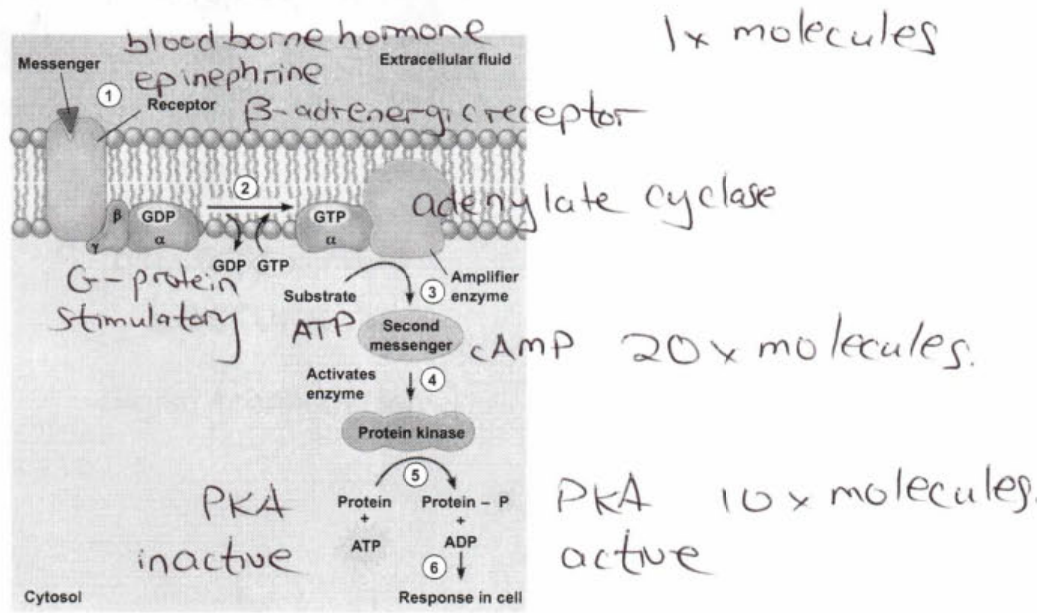 blood borne hormone
1x molecules
Messenger
epinephrine
Extracellular fluid
1
Receptor
β-adrenergic receptor
2
adenylate cyclase
β
GDP
GTP
γ
α
α
GDP GTP
Amplifier
enzyme
G-protein
stimulatory
Substrate
3
ATP
Second
messenger
cAMP 20x molecules.
Activates
enzyme
4
Protein kinase
5
PKA
inactive
Protein
+
ATP
Protein – P
+
ADP
PKA 10x molecules.
active
6
Cytosol
Response in cell